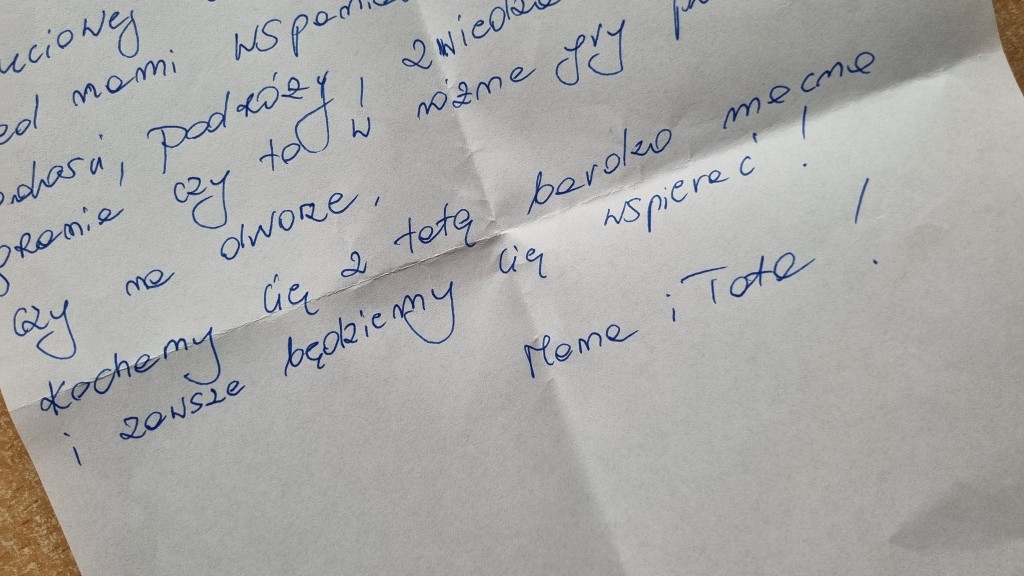 uciowej
ed nami wspomnie
odhasú, podróży, zwiedza
grania czy to w różne gry
czy na dworze.
Kochamy cię z tatą bardzo mocno
i zawsze będziemy cię wspierać!
Mama i Tata!